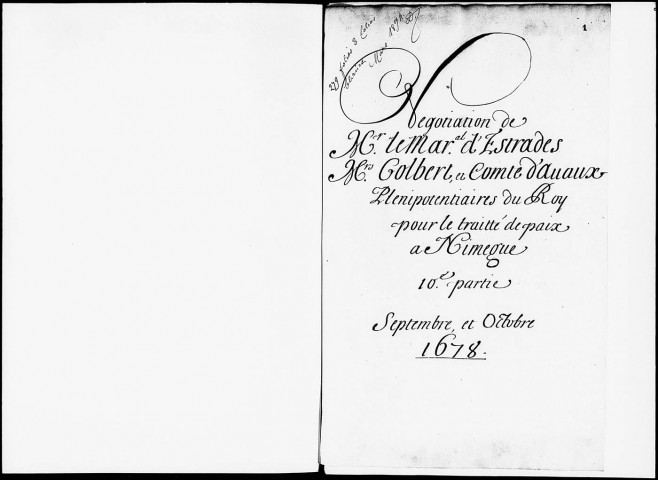 1
229 folios & Cotés
Mars 1891
Negotiation de
M.r le Mar.al d'Estrades
M.rs Colbert, et Comte d'Auaux
Plenipotentiaires du Roy
pour le traitté de paix
a Nimegue
10.e partie
Septembre, et Octobre
1678.